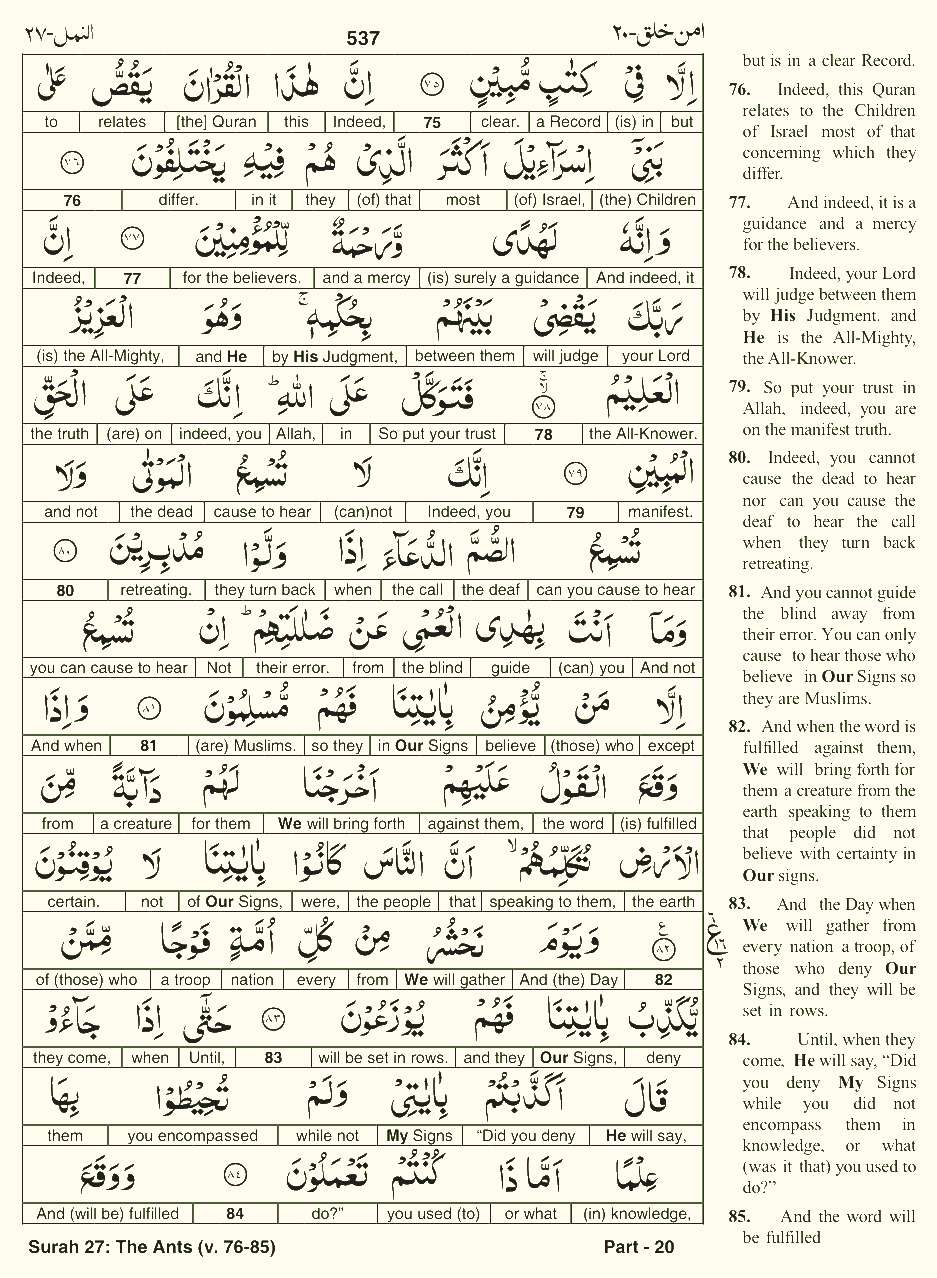 النمل-٢٧
537
امن خلق-٢٠
اِلَّا فِیْ كِتٰبٍ مُّبِیْنٍ ﴿٧٥﴾ اِنَّ هٰذَا الْقُرْاٰنَ یَقُصُّ عَلٰی
but (is) in a Record clear. 75 Indeed, this [the] Quran relates to
بَنِیْۤ اِسْرَآءِیْلَ اَكْثَرَ الَّذِیْ هُمْ فِیْهِ یَخْتَلِفُوْنَ ﴿٧٦﴾
(the) Children (of) Israel, most (of) that they in it differ. 76
وَاِنَّهٗ لَهُدًی وَّرَحْمَةٌ لِّلْمُؤْمِنِیْنَ ﴿٧٧﴾ اِنَّ
And indeed, it (is) surely a guidance and a mercy for the believers. 77 Indeed,
رَبَّكَ یَقْضِیْ بَیْنَهُمْ بِحُكْمِهٖ ۚ وَهُوَ الْعَزِیْزُ
your Lord will judge between them by His Judgment, and He (is) the All-Mighty,
الْعَلِیْمُ ﴿٧٨﴾ فَتَوَكَّلْ عَلَی اللّٰهِ ؕ اِنَّكَ عَلَی الْحَقِّ
the All-Knower. 78 So put your trust in Allah, indeed, you (are) on the truth
الْمُبِیْنِ ﴿٧٩﴾ اِنَّكَ لَا تُسْمِعُ الْمَوْتٰی وَلَا
manifest. 79 Indeed, you (can)not cause to hear the dead and not
تُسْمِعُ الصُّمَّ الدُّعَآءَ اِذَا وَلَّوْا مُدْبِرِیْنَ ﴿٨٠﴾
can you cause to hear the deaf the call when they turn back retreating. 80
وَمَاۤ اَنْتَ بِهٰدِی الْعُمْیِ عَنْ ضَلٰلَتِهِمْ ؕ اِنْ تُسْمِعُ
And not (can) you guide the blind from their error. Not you can cause to hear
اِلَّا مَنْ یُّؤْمِنُ بِاٰیٰتِنَا فَهُمْ مُّسْلِمُوْنَ ﴿٨١﴾ وَاِذَا
except (those) who believe in Our Signs so they (are) Muslims. 81 And when
وَقَعَ الْقَوْلُ عَلَیْهِمْ اَخْرَجْنَا لَهُمْ دَآبَّةً مِّنَ
(is) fulfilled the word against them, We will bring forth for them a creature from
الْاَرْضِ تُكَلِّمُهُمْ ۙ اَنَّ النَّاسَ كَانُوْا بِاٰیٰتِنَا لَا یُوْقِنُوْنَ
the earth speaking to them, that the people were, of Our Signs, not certain.
﴿٨٢﴾ وَیَوْمَ نَحْشُرُ مِنْ كُلِّ اُمَّةٍ فَوْجًا مِّمَّنْ
82 And (the) Day We will gather from every nation a troop of (those) who
یُّكَذِّبُ بِاٰیٰتِنَا فَهُمْ یُوْزَعُوْنَ ﴿٨٣﴾ حَتّٰۤی اِذَا جَآءُوْ
deny Our Signs, and they will be set in rows. 83 Until, when they come,
قَالَ اَكَذَّبْتُمْ بِاٰیٰتِیْ وَلَمْ تُحِیْطُوْا بِهَا
He will say, “Did you deny My Signs while not you encompassed them
عِلْمًا اَمَّا ذَا كُنْتُمْ تَعْمَلُوْنَ ﴿٨٤﴾ وَوَقَعَ
(in) knowledge, or what you used (to) do?” 84 And (will be) fulfilled
Surah 27: The Ants (v. 76-85)
Part - 20
but is in a clear Record.
76. Indeed, this Quran
relates to the Children
of Israel most of that
concerning which they
differ.
77. And indeed, it is a
guidance and a mercy
for the believers.
78. Indeed, your Lord
will judge between them
by His Judgment. and
He is the All-Mighty,
the All-Knower.
79. So put your trust in
Allah, indeed, you are
on the manifest truth.
80. Indeed, you cannot
cause the dead to hear
nor can you cause the
deaf to hear the call
when they turn back
retreating.
81. And you cannot guide
the blind away from
their error. You can only
cause to hear those who
believe in Our Signs so
they are Muslims.
82. And when the word is
fulfilled against them,
We will bring forth for
them a creature from the
earth speaking to them
that people did not
believe with certainty in
Our signs.
83. And the Day when
We will gather from
every nation a troop, of
those who deny Our
Signs, and they will be
set in rows.
84. Until, when they
come, He will say, “Did
you deny My Signs
while you did not
encompass them in
knowledge, or what
(was it that) you used to
do?”
85. And the word will
be fulfilled